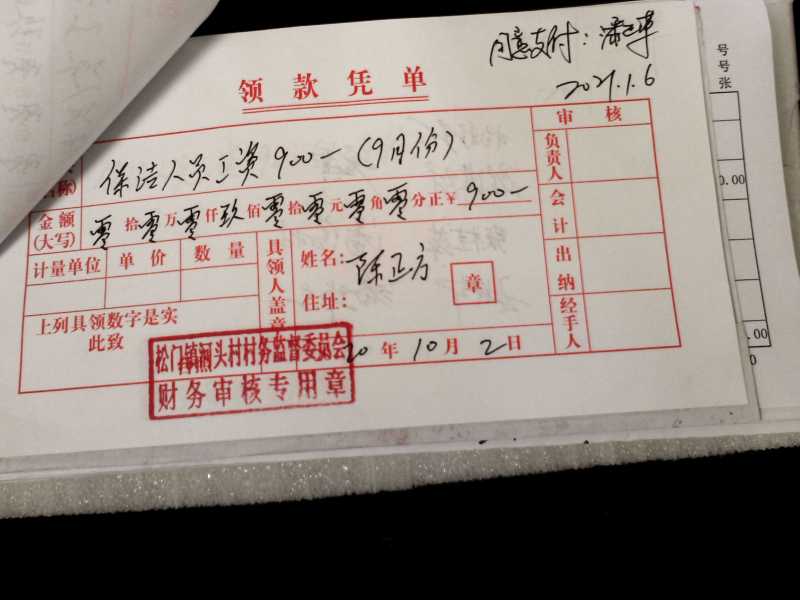 同意支付：潘
2021.1.6
领款凭单
名称）
保洁人员工资900一（9月份）
金额（大写）零拾零万零仟玖佰零拾零元零角零分正￥900一
计量单位 单价 数量
具领人盖章
姓名：陈正方
住址：
章
上列具领数字是实
此致
20年10月2日
松门镇洞头村村务监督委员会
财务审核专用章
审核
负责人
会计
出纳
经手人
号
号
张
0.00
.00
0